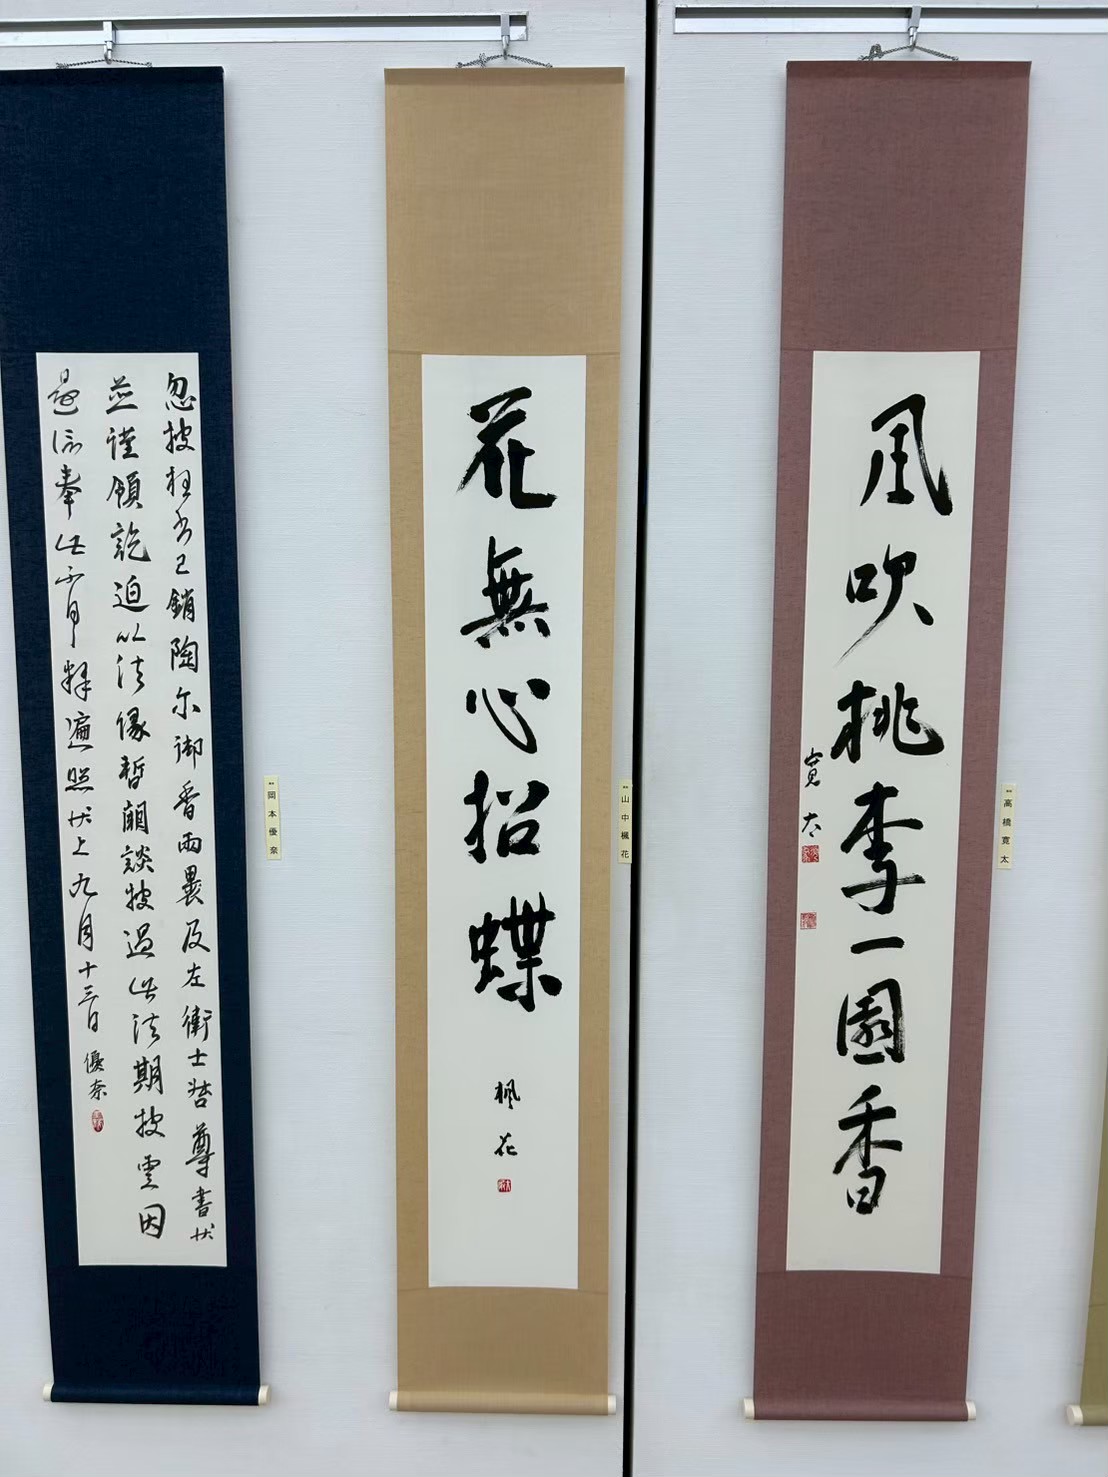 風吹桃李一園香
寛太
高橋寛太
花無心招蝶
楓花
山中楓花
忽披枉書已銷陶尓御香兩裹及左衛士督尊書状
並謹領訖迫以法縁暫闕談披過此法期披雲因
還信奉此不具釋遍照状上九月十三日
優奈
岡本優奈